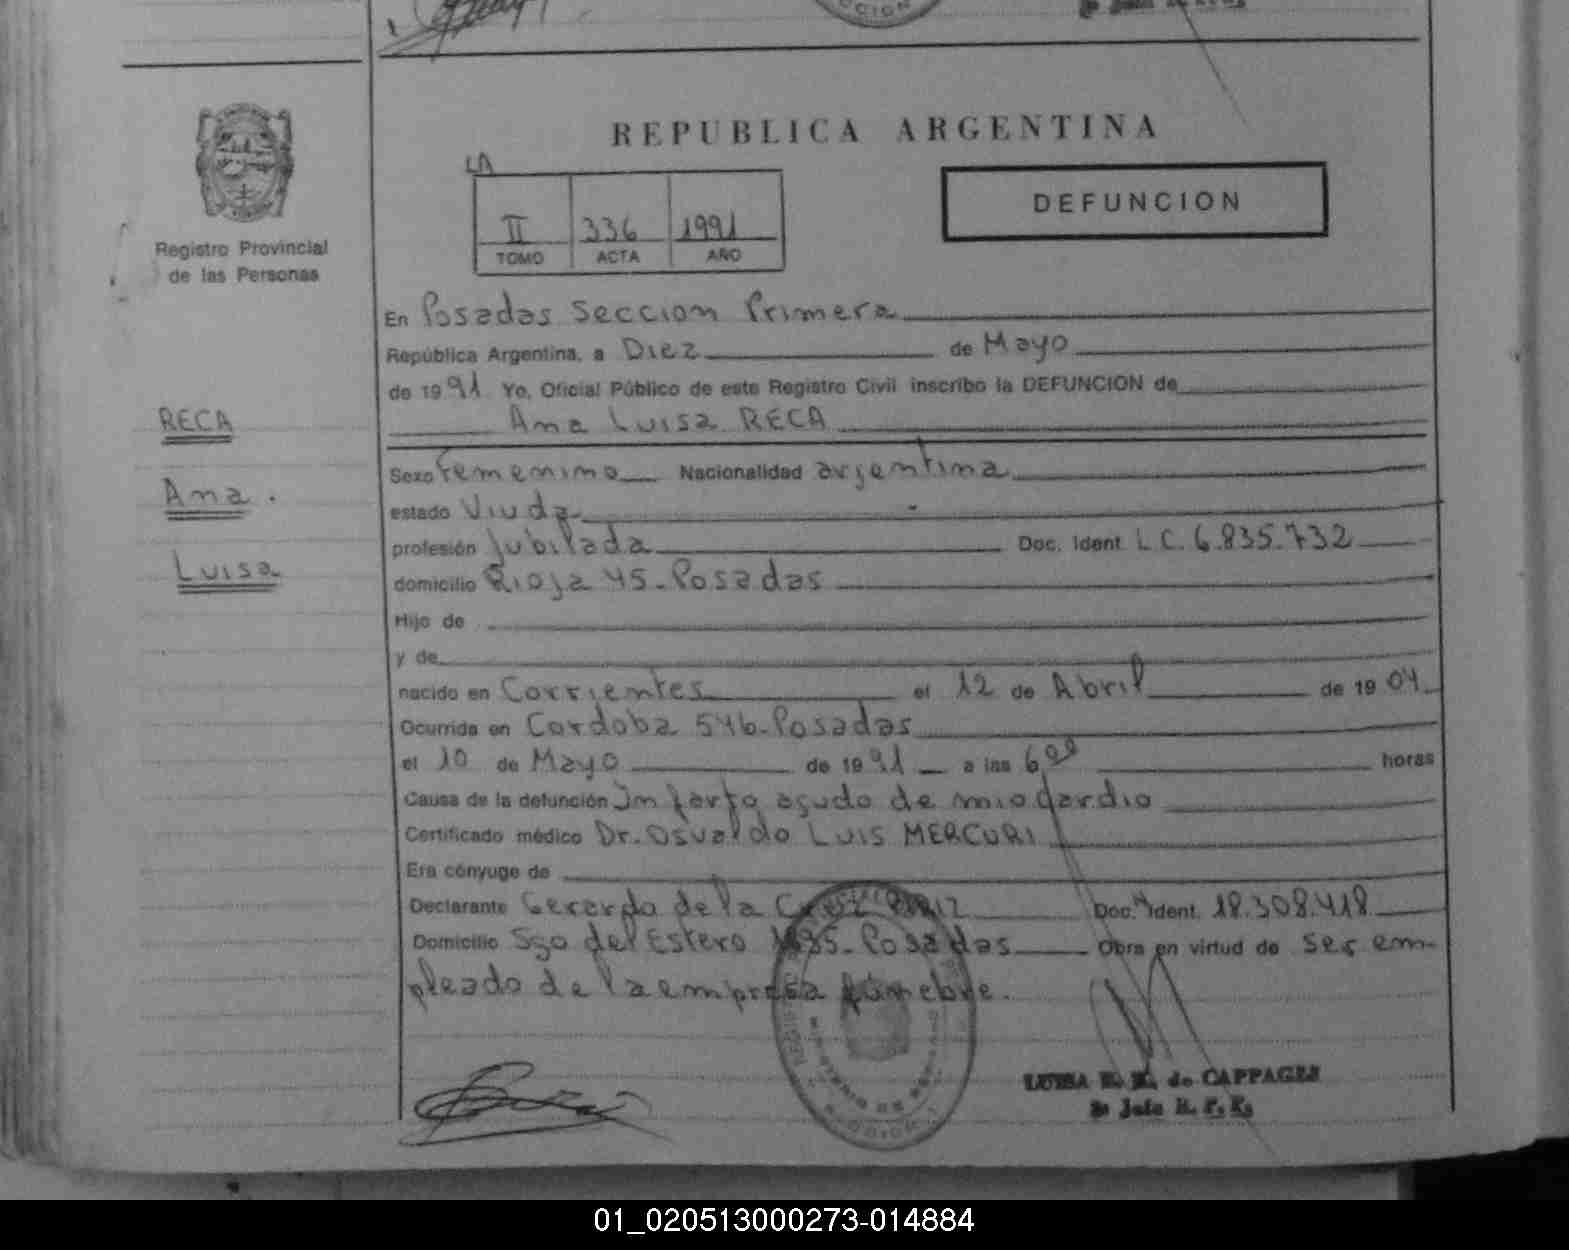 REPUBLICA ARGENTINA
LA
II 336 1991
TOMO ACTA AÑO
DEFUNCION
Registro Provincial
de las Personas
RECA
Ana
Luisa
En Posadas Seccion Primera
República Argentina, a Diez de Mayo
de 1991 Yo, Oficial Público de este Registro Civil inscribo la DEFUNCION de
Ana Luisa RECA
Sexo Femenino Nacionalidad argentina
estado Viuda
profesión Jubilada Doc. Ident. L.C. 6.835.732
domicilio Rioja 45-Posadas
Hijo de
y de
nacido en Corrientes el 12 de Abril de 1904
Ocurrida en Cordoba 546-Posadas
el 10 de Mayo de 1991 a las 6 horas
Causa de la defunción Infarto agudo de miocardio
Certificado médico Dr. Osvaldo Luis MERCURI
Era cónyuge de
Declarante Gerardo de la Doc. Ident. 18.308.418
Domicilio Sgo del Estero Posadas Obra en virtud de ser em-
pleado de la empresa fúnebre.
LUISA de CAPPAGLI
Jefe R. P.
01_020513000273-014884